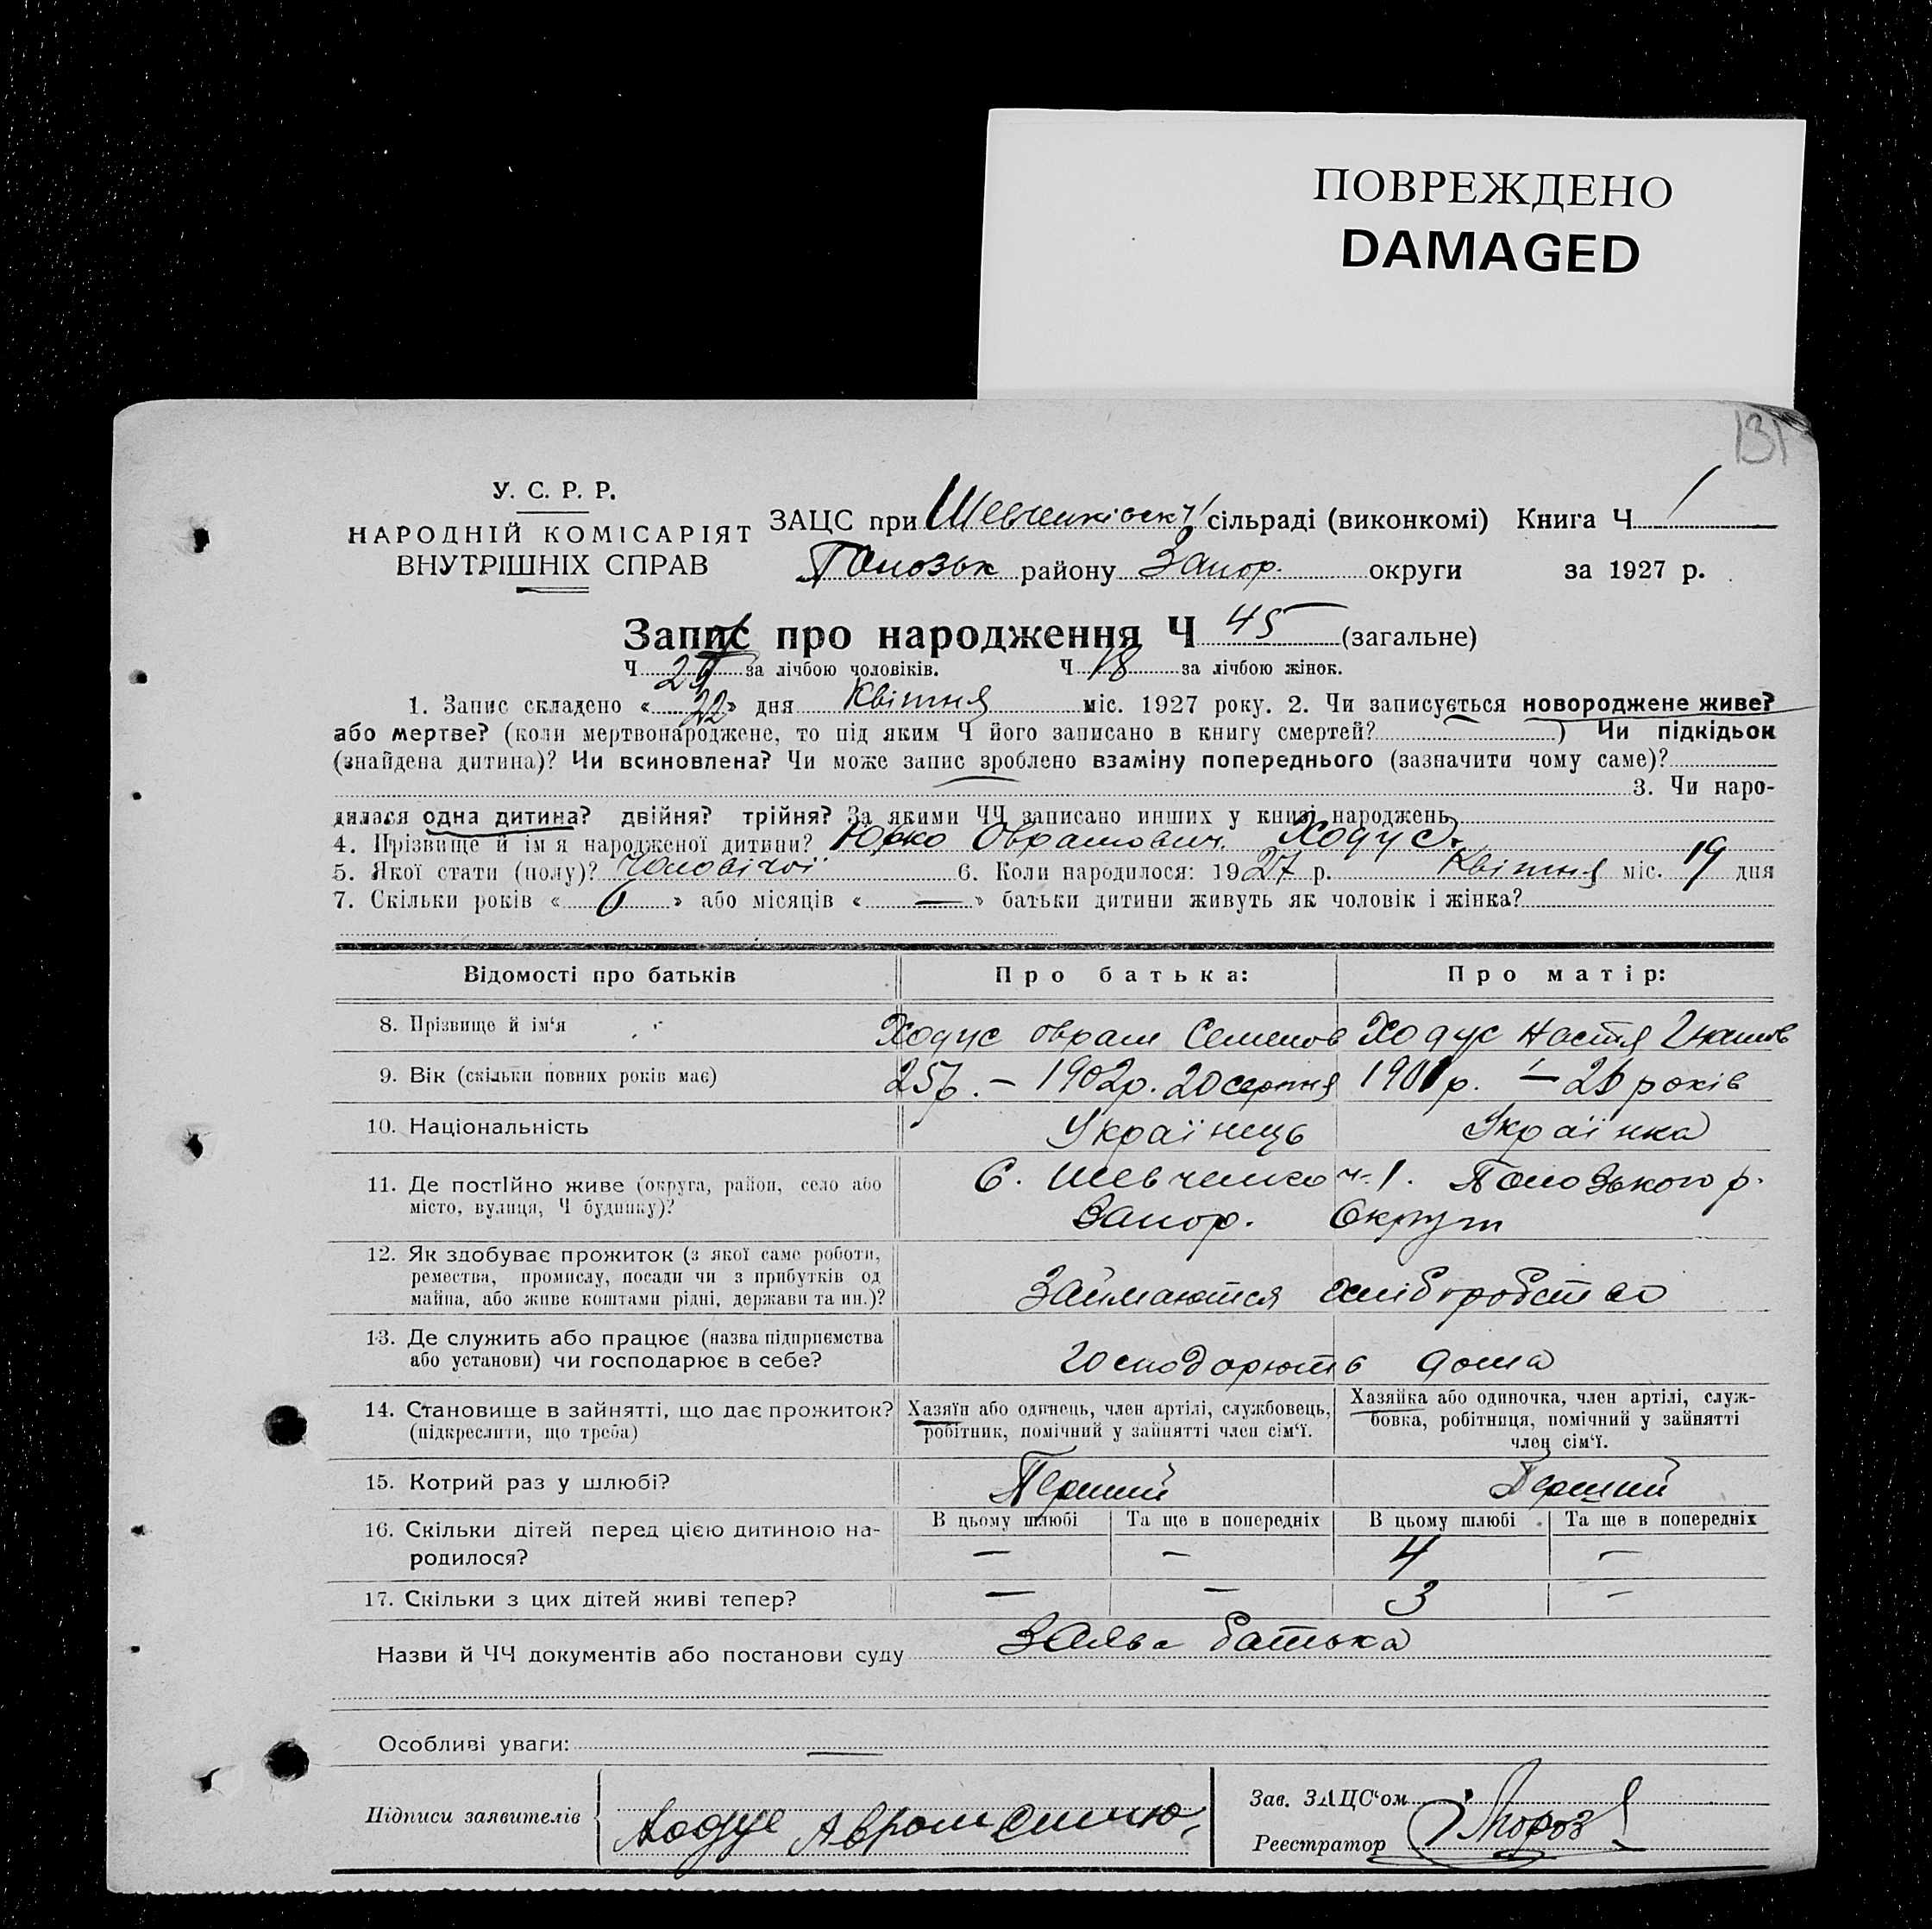 ПОВРЕЖДЕНО
DAMAGED
131
У. С. Р. Р.
НАРОДНІЙ КОМІСАРІЯТ
ВНУТРІШНІХ СПРАВ
ЗАЦС при Шевченківськ сільраді (виконкомі) Книга Ч 1
району Запор. округи за 1927 р.
Запис про народження Ч 45 (загальне)
Ч за лічбою чоловіків. Ч 18 за лічбою жінок.
1. Запис складено « 22 » дня Квітня міс. 1927 року. 2. Чи записується новороджене живе?
або мертве? (коли мертвонароджене, то під яким Ч його записано в книгу смертей? — ) Чи підкідьок
(знайдена дитина)? Чи всиновлена? Чи може запис зроблено взаміну попереднього (зазначити чому саме)?
3. Чи наро-
дилася одна дитина? двійня? трійня? За якими ЧЧ записано инших у книзі народжень
4. Прізвище й ім я народженої дитини? Юрко Оврамович Ходус.
5. Якої стати (полу)? Чоловічої 6. Коли народилося: 1927 р. Квітня міс. 19 дня
7. Скільки років « 6 » або місяців « — » батьки дитини живуть як чоловік і жінка?
Відомості про батьків Про батька: Про матір:
8. Прізвище й ім‘я Ходус Оврам Семенов Ходус Настя Гнатов
9. Вік (скільки повних років має) 25р. — 1902р. 20 серпня 1901р. — 26 років
10. Національність Українець Українка
11. Де постійно живе (округа, район, село або С. Шевченко ч. 1. Пологзького р.
місто, вулиця, Ч будинку)? Запор. Округи
12. Як здобуває прожиток (з якої саме роботи,
ремества, промислу, посади чи з прибутків од
майна, або живе коштами рідні, держави та ин.)? Займаются хліборобство
13. Де служить або працює (назва підприємства
або установи) чи господарює в себе? Господарюють дома
14. Становище в зайнятті, що дає прожиток? Хазяїн або одинець, член артілі, службовець, Хазяйка або одиночка, член артілі, служ-
(підкреслити, що треба) робітник, помічний у зайнятті член сім‘ї. бовка, робітниця, помічний у зайнятті
член сім‘ї.
15. Котрий раз у шлюбі? Перший Перший
В цьому шлюбі Та ще в попередніх В цьому шлюбі Та ще в попередніх
16. Скільки дітей перед цією дитиною на-
родилося? — — 4 —
17. Скільки з цих дітей живі тепер? — — 3 —
Назви й ЧЧ документів або постанови суду Заява батька
Особливі уваги: —
Підписи заявителів Ходус Аврам
Зав. ЗАЦС‘ом
Реестратор Мороз